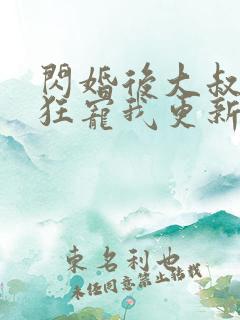 閃婚後大叔
狂寵我更新
東名利也
未任同意禁止轉載